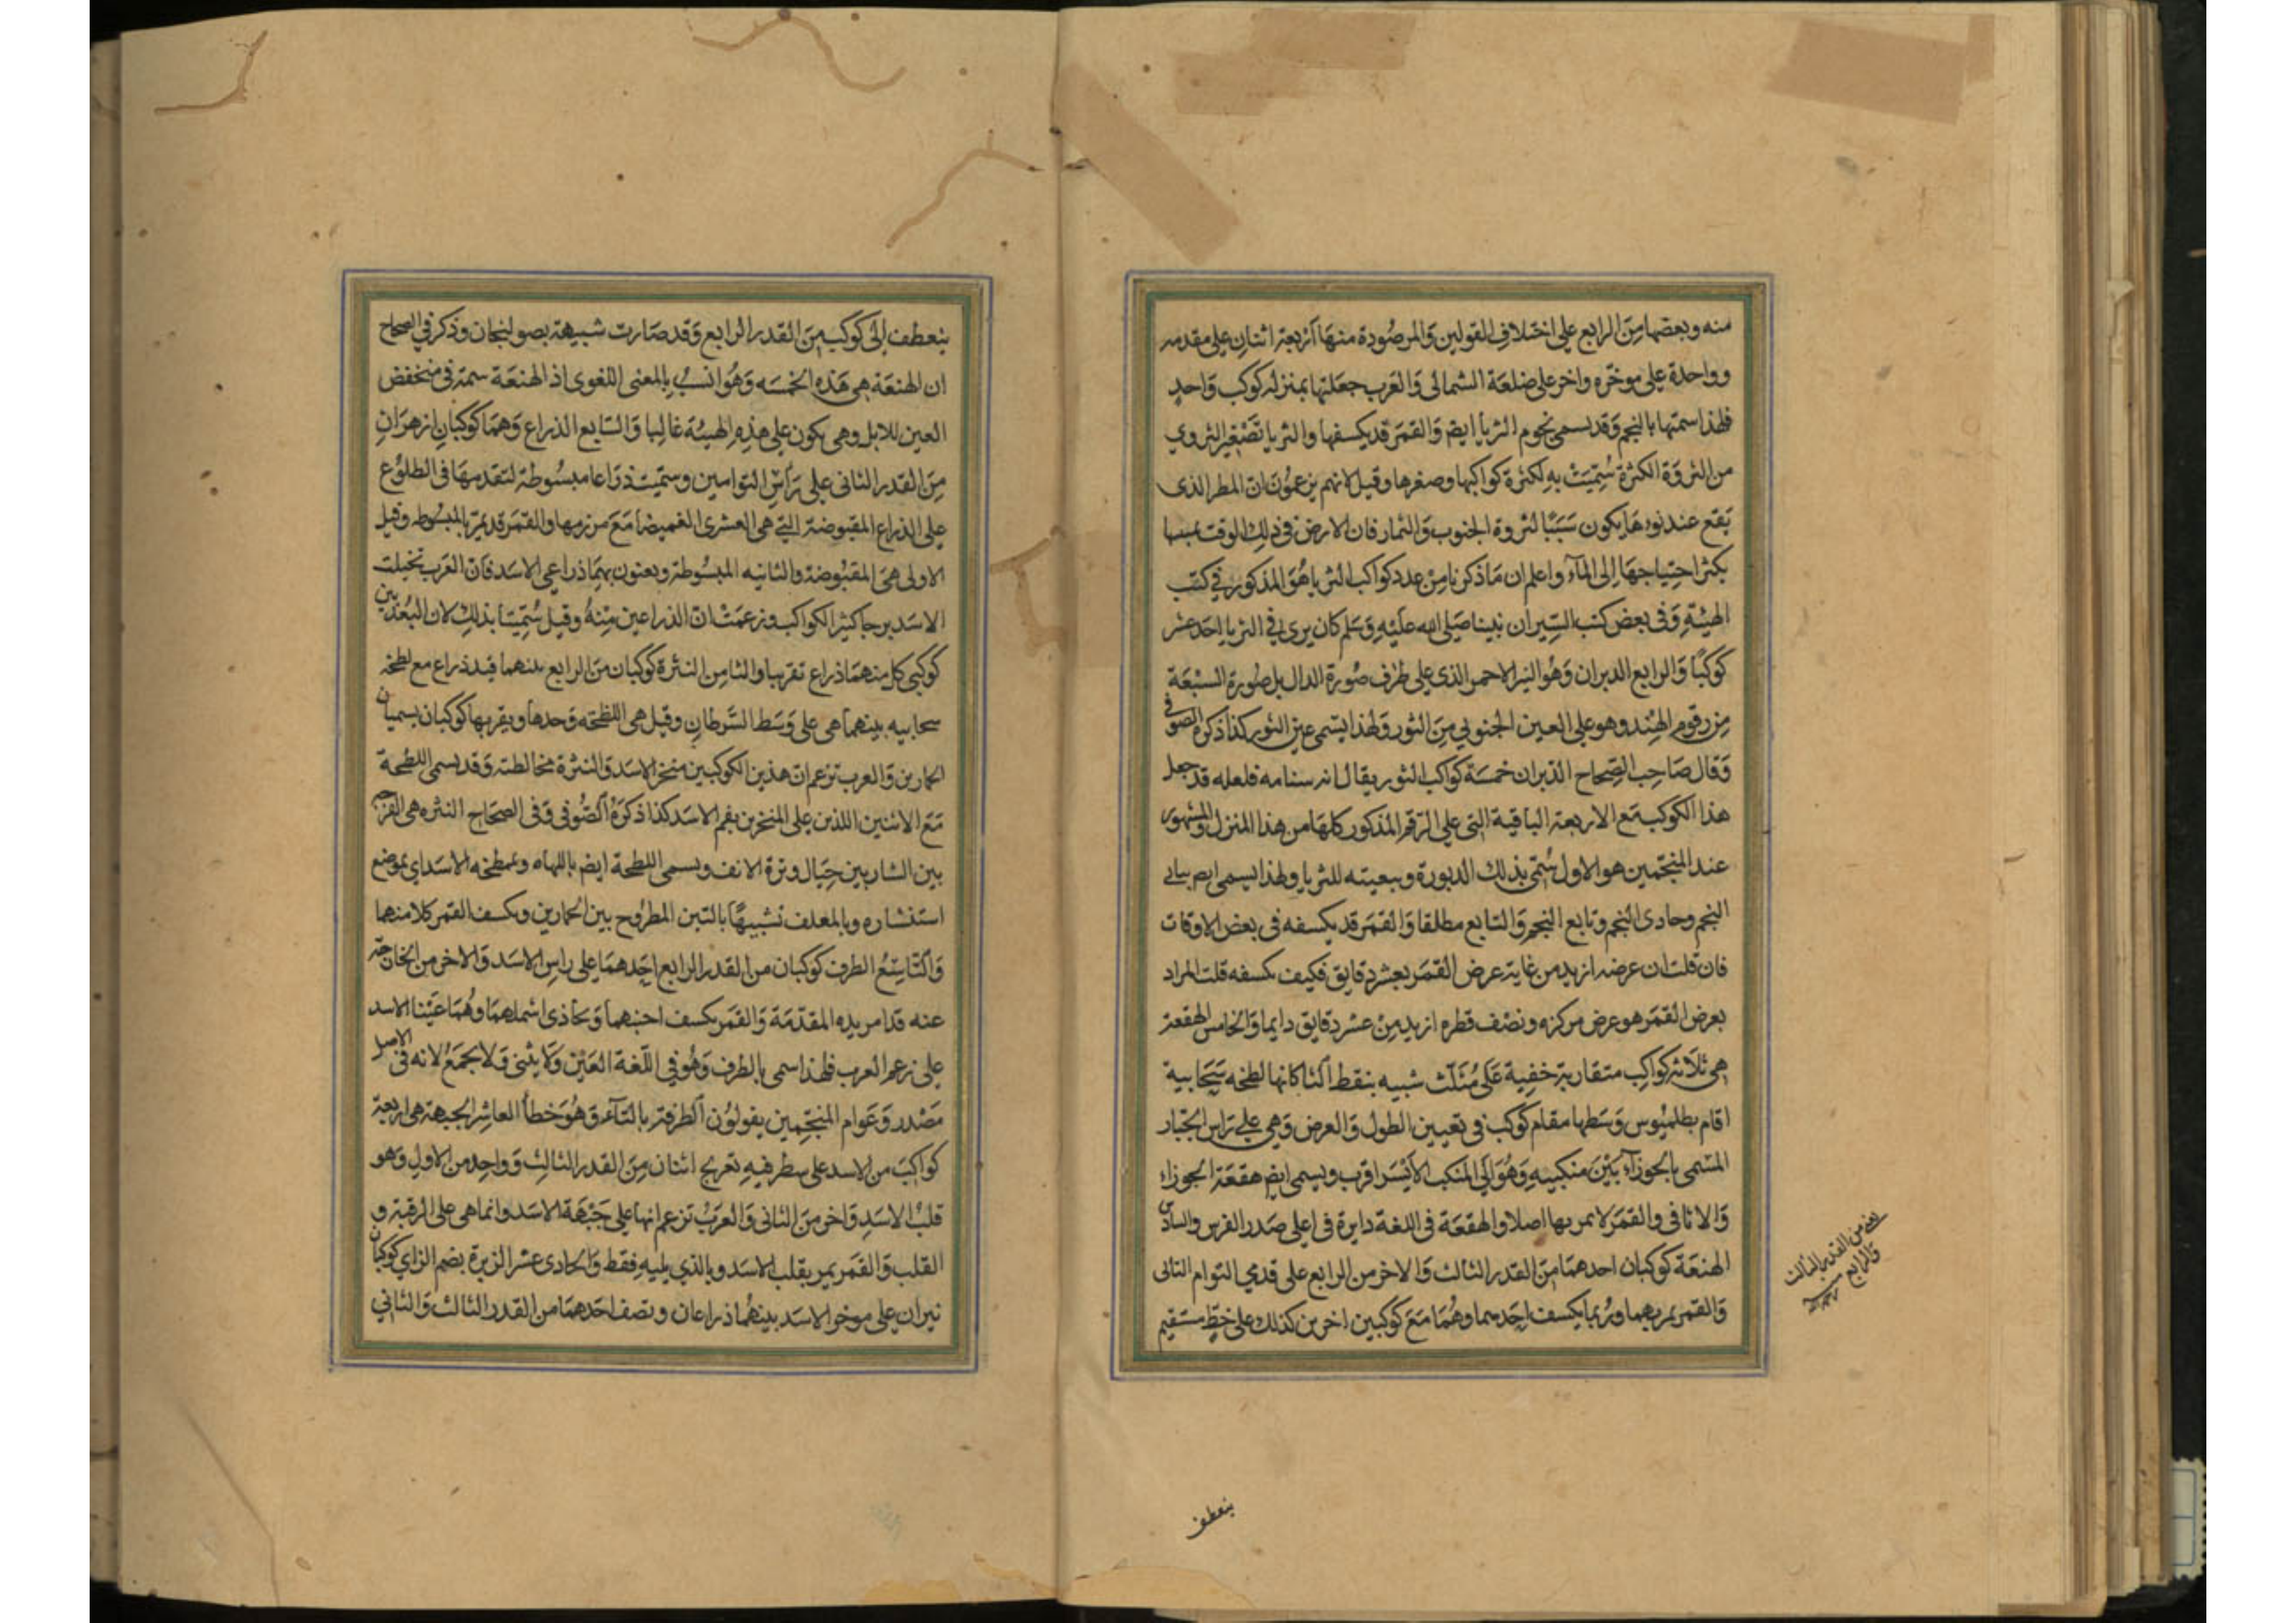 منه وبعضها من الرابع على اختلاف القولين والمرصودة منها اربعة اثنان على مقدمه
وواحدة على موخره واخر على ضلعه الشمالى والعرب جعلتها بمنزلة كوكب واحد
فلهذا سمتها بالنجم وقد يسمى نجوم الثريا ايضا والقمر قد يكسفها والثريا تصغير الثروي
من الثروة الكثرة سميت به لكثرة كواكبها وصغرها وقيل لانهم يزعمون ان المطر الذى
يقع عند نوءها يكون سببا لثروة الجنوب والثمار فان الارض فى ذلك الوقت بسببها
يكثر احتياجها الى المآء واعلم ان ما ذكرنا من عدد كواكب الثريا هو المذكور فى كتب
الهيئة وفى بعض كتب السير ان نبينا صلى الله عليه وسلم كان يرى فى الثريا احد عشر
كوكبا والرابع الدبران وهو النير الاحمر الذى على طرف صورة الدال بل صورة السبعة
من رقوم الهند وهو على العين الجنوبي من الثور ولهذا يسمى عين الثور كذا ذكره الصوفى
وقال صاحب الصحاح الدبران خمسة كواكب الثور يقال انه سنامه فلعله قد جعل
هذا الكوكب مع الاربعة الباقية التى على الرقم المذكور كلها من هذا المنزل والمشهور
عند المنجمين هو الاول سمى بذلك الدبورة وتبعيته للثريا ولهذا يسمى ايضا بتالى
النجم وحادى النجم وتابع النجم والتابع مطلقا والقمر قد يكسفه فى بعض الاوقات
فان قلت ان عرضه ازيد من غاية عرض القمر بعشر دقايق فكيف يكسفه قلت المراد
بعرض القمر هو عرض مركزه ونصف قطره ازيد من عشر دقايق دايما والخامس الهقعة
هى ثلاثة كواكب متقاربة خفية على مثلث شبيه بنقط الثا كانها لطخه سحابية
اقام بطلميوس وسطها مقام كوكب فى تعيين الطول والعرض وهى على راس الجبار
المسمى بالجوزآء بين منكبيه وهو الى المنكب الايسر اقرب ويسمى ايضا هقعة الجوزاء
والاثافى والقمر لا يمر بها اصلا والهقعة فى اللغة دايرة فى اعلى صدر الفرس والسادس
الهنعة كوكبان احدهما من القدر الثالث والاخر من الرابع على قدمي التوام الثانى
والقمر يمر بهما وربما يكسف احدهما وهما مع كوكبين اخرين كذلك على خط مستقيم
يعني من القدر الثالث
والرابع
ينعطف
ينعطف الى كوكب من القدر الرابع وقد صارت شبيهة بصولجان وذكر فى الصحاح
ان الهنعة هى هذه الخمسه وهو انسب بالمعنى اللغوى اذ الهنعة سمة فى منخفض
العين للابل وهى يكون على هذه الهيئة غالبا والسابع الذراع وهما كوكبان ازهران
من القدر الثانى على راس التوامين وسميت ذراعا مبسوطة لتقدمها فى الطلوع
على الذراع المقبوضة التى هى العشرى الغميضا مع مرزمها والقمر قد يمر بالمبسوطه وقيل
الاولى هى المقبوضة والثانيه المبسوطة ويعنون بهما ذراعى الاسد فان العرب تخيلت
الاسد برجا كثير الكواكب وزعمت ان الذراعين منه وقيل سميتا بذلك لان البعد بين
كوكبى كل منهما ذراع تقريبا والثامن النثرة كوكبان من الرابع بينهما قيد ذراع مع لطخة
سحابيه بينهما هى على وسط السرطان وقيل هى اللطخه وحدها ويقربها كوكبان يسميان
الحمارين والعرب تزعم ان هذين الكوكبين منخر الاسد والنثرة مخاطته وقد يسمى اللطخة
مع الاثنين اللذين على المنخرين بفم الاسد كذا ذكره الصوفى وفى الصحاح النثره هى الفرجة
بين الشاربين حيال وترة الانف ويسمى اللطخة ايضا باللهاه وبمطخه الاسد اى موضع
استنشاره وبالمعلف تشبيها بالتبن المطروح بين الحمارين ويكسف القمر كلا منهما
والتاسع الطرف كوكبان من القدر الرابع احدهما على راس الاسد والاخر من الخارجة
عنه قدام يده المقدمة والقمر يكسف اجنبهما ويحاذى اشملهما وهما عينا الاسد
على زعم العرب فلهذا سمى بالطرف وهو فى اللغة العين ولا يثنى ولا يجمع لانه فى الاصل
مصدر وعوام المنجمين يقولون الطرفة بالتآء وهو خطأ العاشر الجبهة هى اربعة
كواكب من الاسد على سطر فيه تعريج اثنان من القدر الثالث وواحد من الاول وهو
قلب الاسد واخر من الثانى والعرب تزعم انها على جبهة الاسد وانما هى على الرقبة و
القلب والقمر يمر بقلب الاسد وبالذي يليه فقط والحادى عشر الزبرة بضم الزاي كوكبان
نيران على موخر الاسد بينهما ذراعان ونصف احدهما من القدر الثالث والثاني